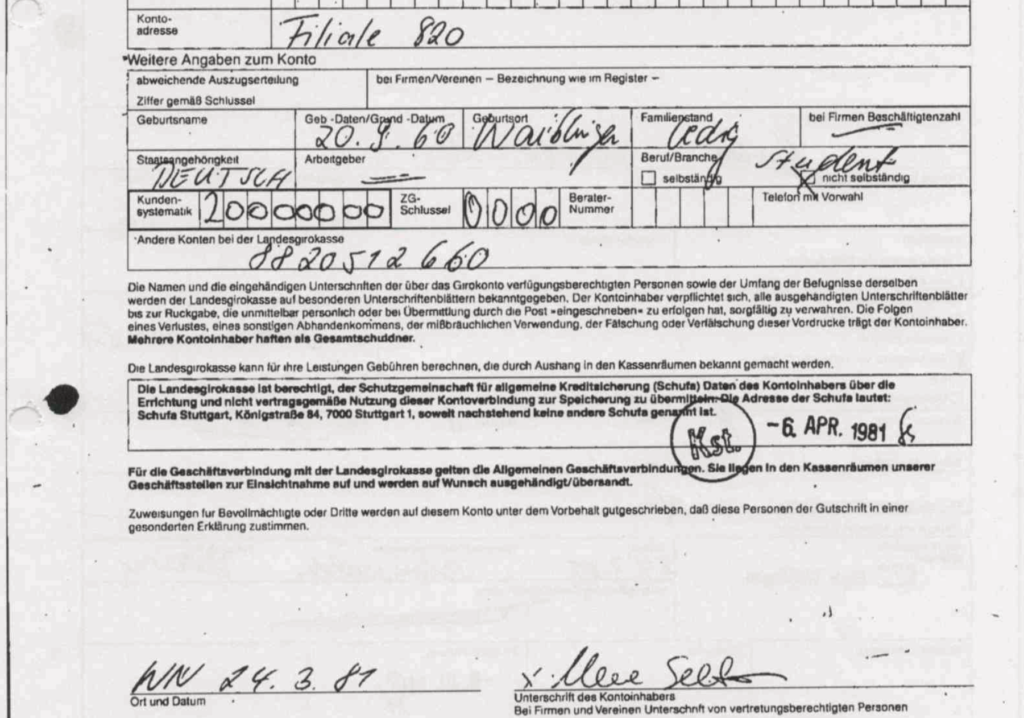 Konto-
adresse
Filiale 820
*Weitere Angaben zum Konto
abweichende Auszugserteilung
bei Firmen/Vereinen – Bezeichnung wie im Register –
Ziffer gemäß Schlussel
Geburtsname
Geb -Daten/Grund -Datum
Geburtsort
Familienstand
bei Firmen Beschäftigtenzahl
20. 9. 60 Waiblingen ledig
Staatsangehörigkeit
Arbeitgeber
Beruf/Branche
Student
DEUTSCH
selbständig
nicht selbständig
Kunden-
systematik
20000000
ZG-
Schlussel
0000
Berater-
Nummer
Telefon mit Vorwahl
Andere Konten bei der Landesgirokasse
8820512660
Die Namen und die eingehändigen Unterschriften der über das Girokonto verfügungsberechtigten Personen sowie der Umfang der Befugnisse derselben
werden der Landesgirokasse auf besonderen Unterschriftenblättern bekanntgegeben. Der Kontoinhaber verpflichtet sich, alle ausgehändigten Unterschriftenblätter
bis zur Rückgabe, die unmittelbar persönlich oder bei Übermittlung durch die Post »eingeschrieben« zu erfolgen hat, sorgfältig zu verwahren. Die Folgen
eines Verlustes, eines sonstigen Abhandenkommens, der mißbräuchlichen Verwendung, der Fälschung oder Verfälschung dieser Vordrucke trägt der Kontoinhaber.
Mehrere Kontoinhaber haften als Gesamtschuldner.
Die Landesgirokasse kann für ihre Leistungen Gebühren berechnen, die durch Aushang in den Kassenräumen bekannt gemacht werden.
Die Landesgirokasse ist berechtigt, der Schutzgemeinschaft für allgemeine Kreditsicherung (Schufa) Daten des Kontoinhabers über die
Errichtung und nicht vertragsgemäße Nutzung dieser Kontoverbindung zur Speicherung zu übermitteln. Die Adresse der Schufa lautet:
Schufa Stuttgart, Königstraße 84, 7000 Stuttgart 1, soweit nachstehend keine andere Schufa genannt ist.
Kst. -6. APR. 1981
Für die Geschäftsverbindung mit der Landesgirokasse gelten die Allgemeinen Geschäftsverbindungen. Sie liegen in den Kassenräumen unserer
Geschäftsstellen zur Einsichtnahme auf und werden auf Wunsch ausgehändigt/übersandt.
Zuweisungen fur Bevollmächtigte oder Dritte werden auf diesem Konto unter dem Vorbehalt gutgeschrieben, daß diese Personen der Gutschrift in einer
gesonderten Erklärung zustimmen.
WN 24. 3. 81
Ort und Datum
Unterschrift des Kontoinhabers
Bei Firmen und Vereinen Unterschrift von vertretungsberechtigten Personen